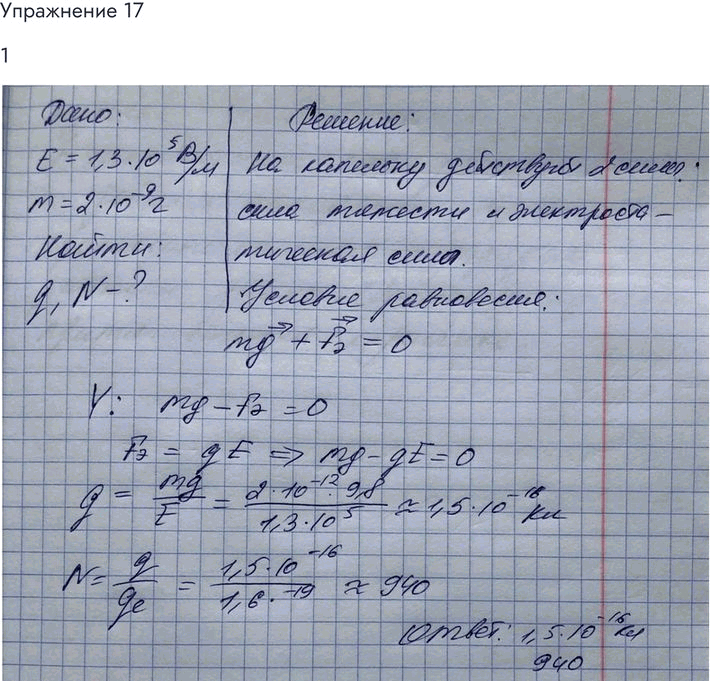 Упражнение 17
1
Дано:
E = 1,3·10⁵ В/м
m = 2·10⁻⁹ г
Найти:
q, N - ?
Решение:
На капельку действуют 2 силы:
сила тяжести и электроста-
тическая сила.
Условие равновесия:
mg⃗ + F⃗э = 0
Y: mg - Fэ = 0
Fэ = qE ⇒ mg - qE = 0
q = mg/E = 2·10⁻¹²·9,8/1,3·10⁵ ≈ 1,5·10⁻¹⁶ Кл
N = q/qe = 1,5·10⁻¹⁶/1,6·⁻¹⁹ ≈ 940
Ответ: 1,5·10⁻¹⁶ Кл
940